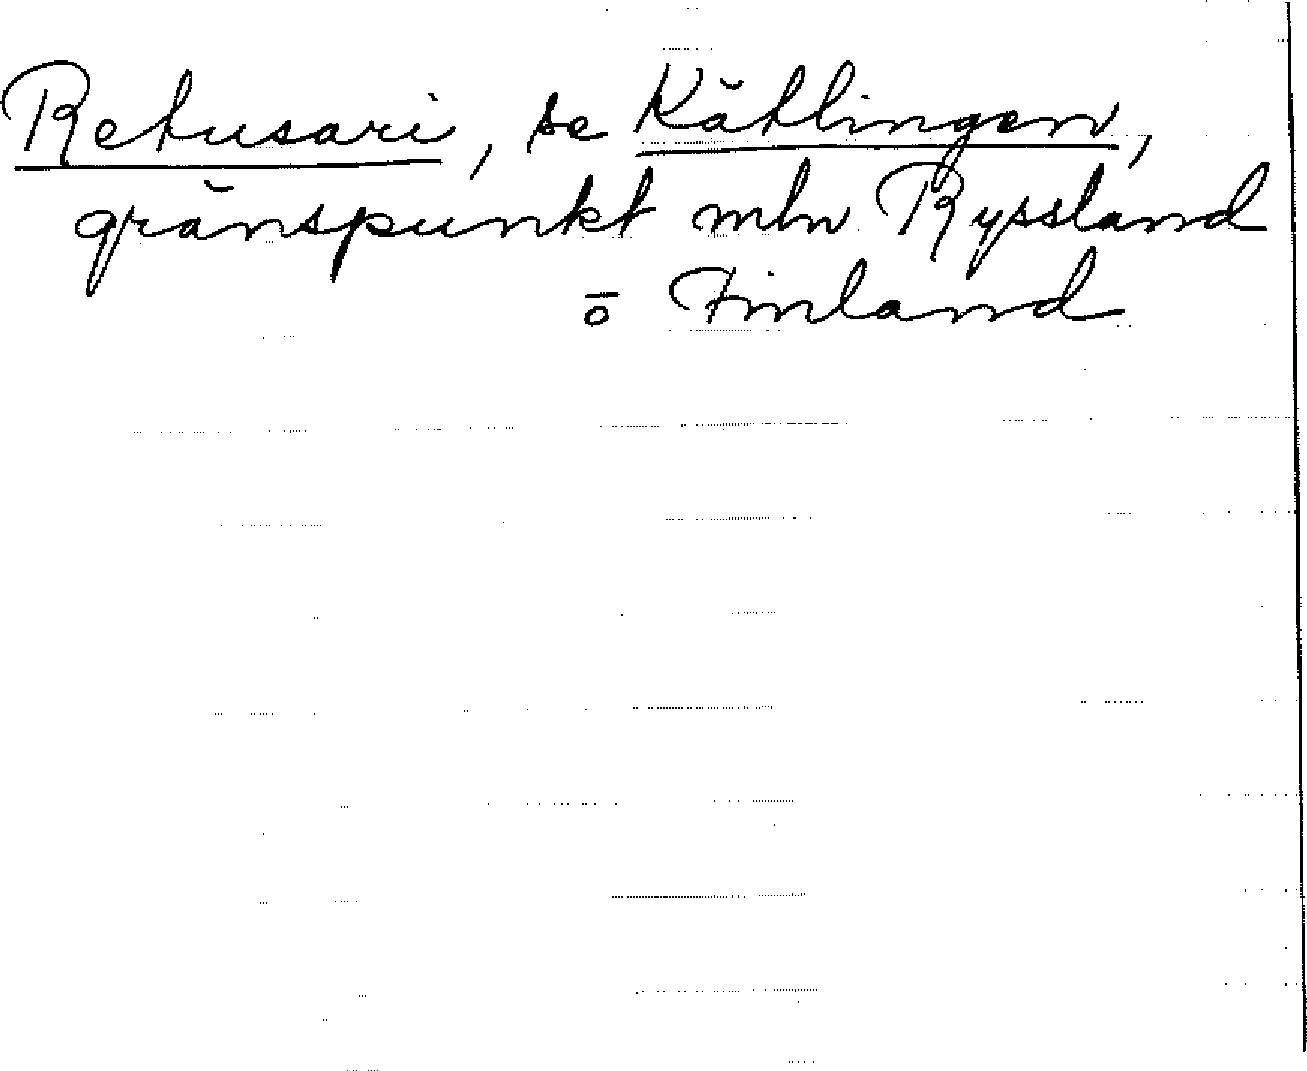 Retusari, se Kätlingen,
gränspunkt mln Ryssland
o Finland